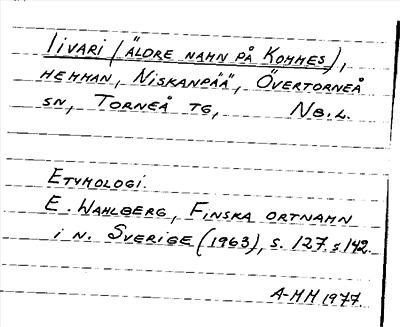 Iivari (äldre namn på Kommes),
hemman, Niskanpää, Övertorneå
sn, Torneå tg, Nb.l.
Etymologi.
E. Wahlberg, Finska ortnamn
i n. Sverige (1963), s. 127. s. 142.
A-MH 1977.